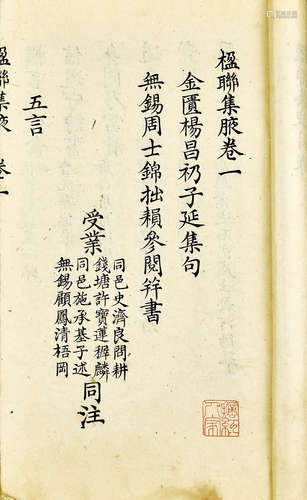 楹聯集腋卷一
金匱楊昌礽子延集句
無錫周士錦拙賴參閱并書
受業
同邑史濟良問耕
錢塘許寶蓮穉麟
同邑施承基子述
無錫顧鳳清梧岡
同注
五言
楹聯集腋 卷一